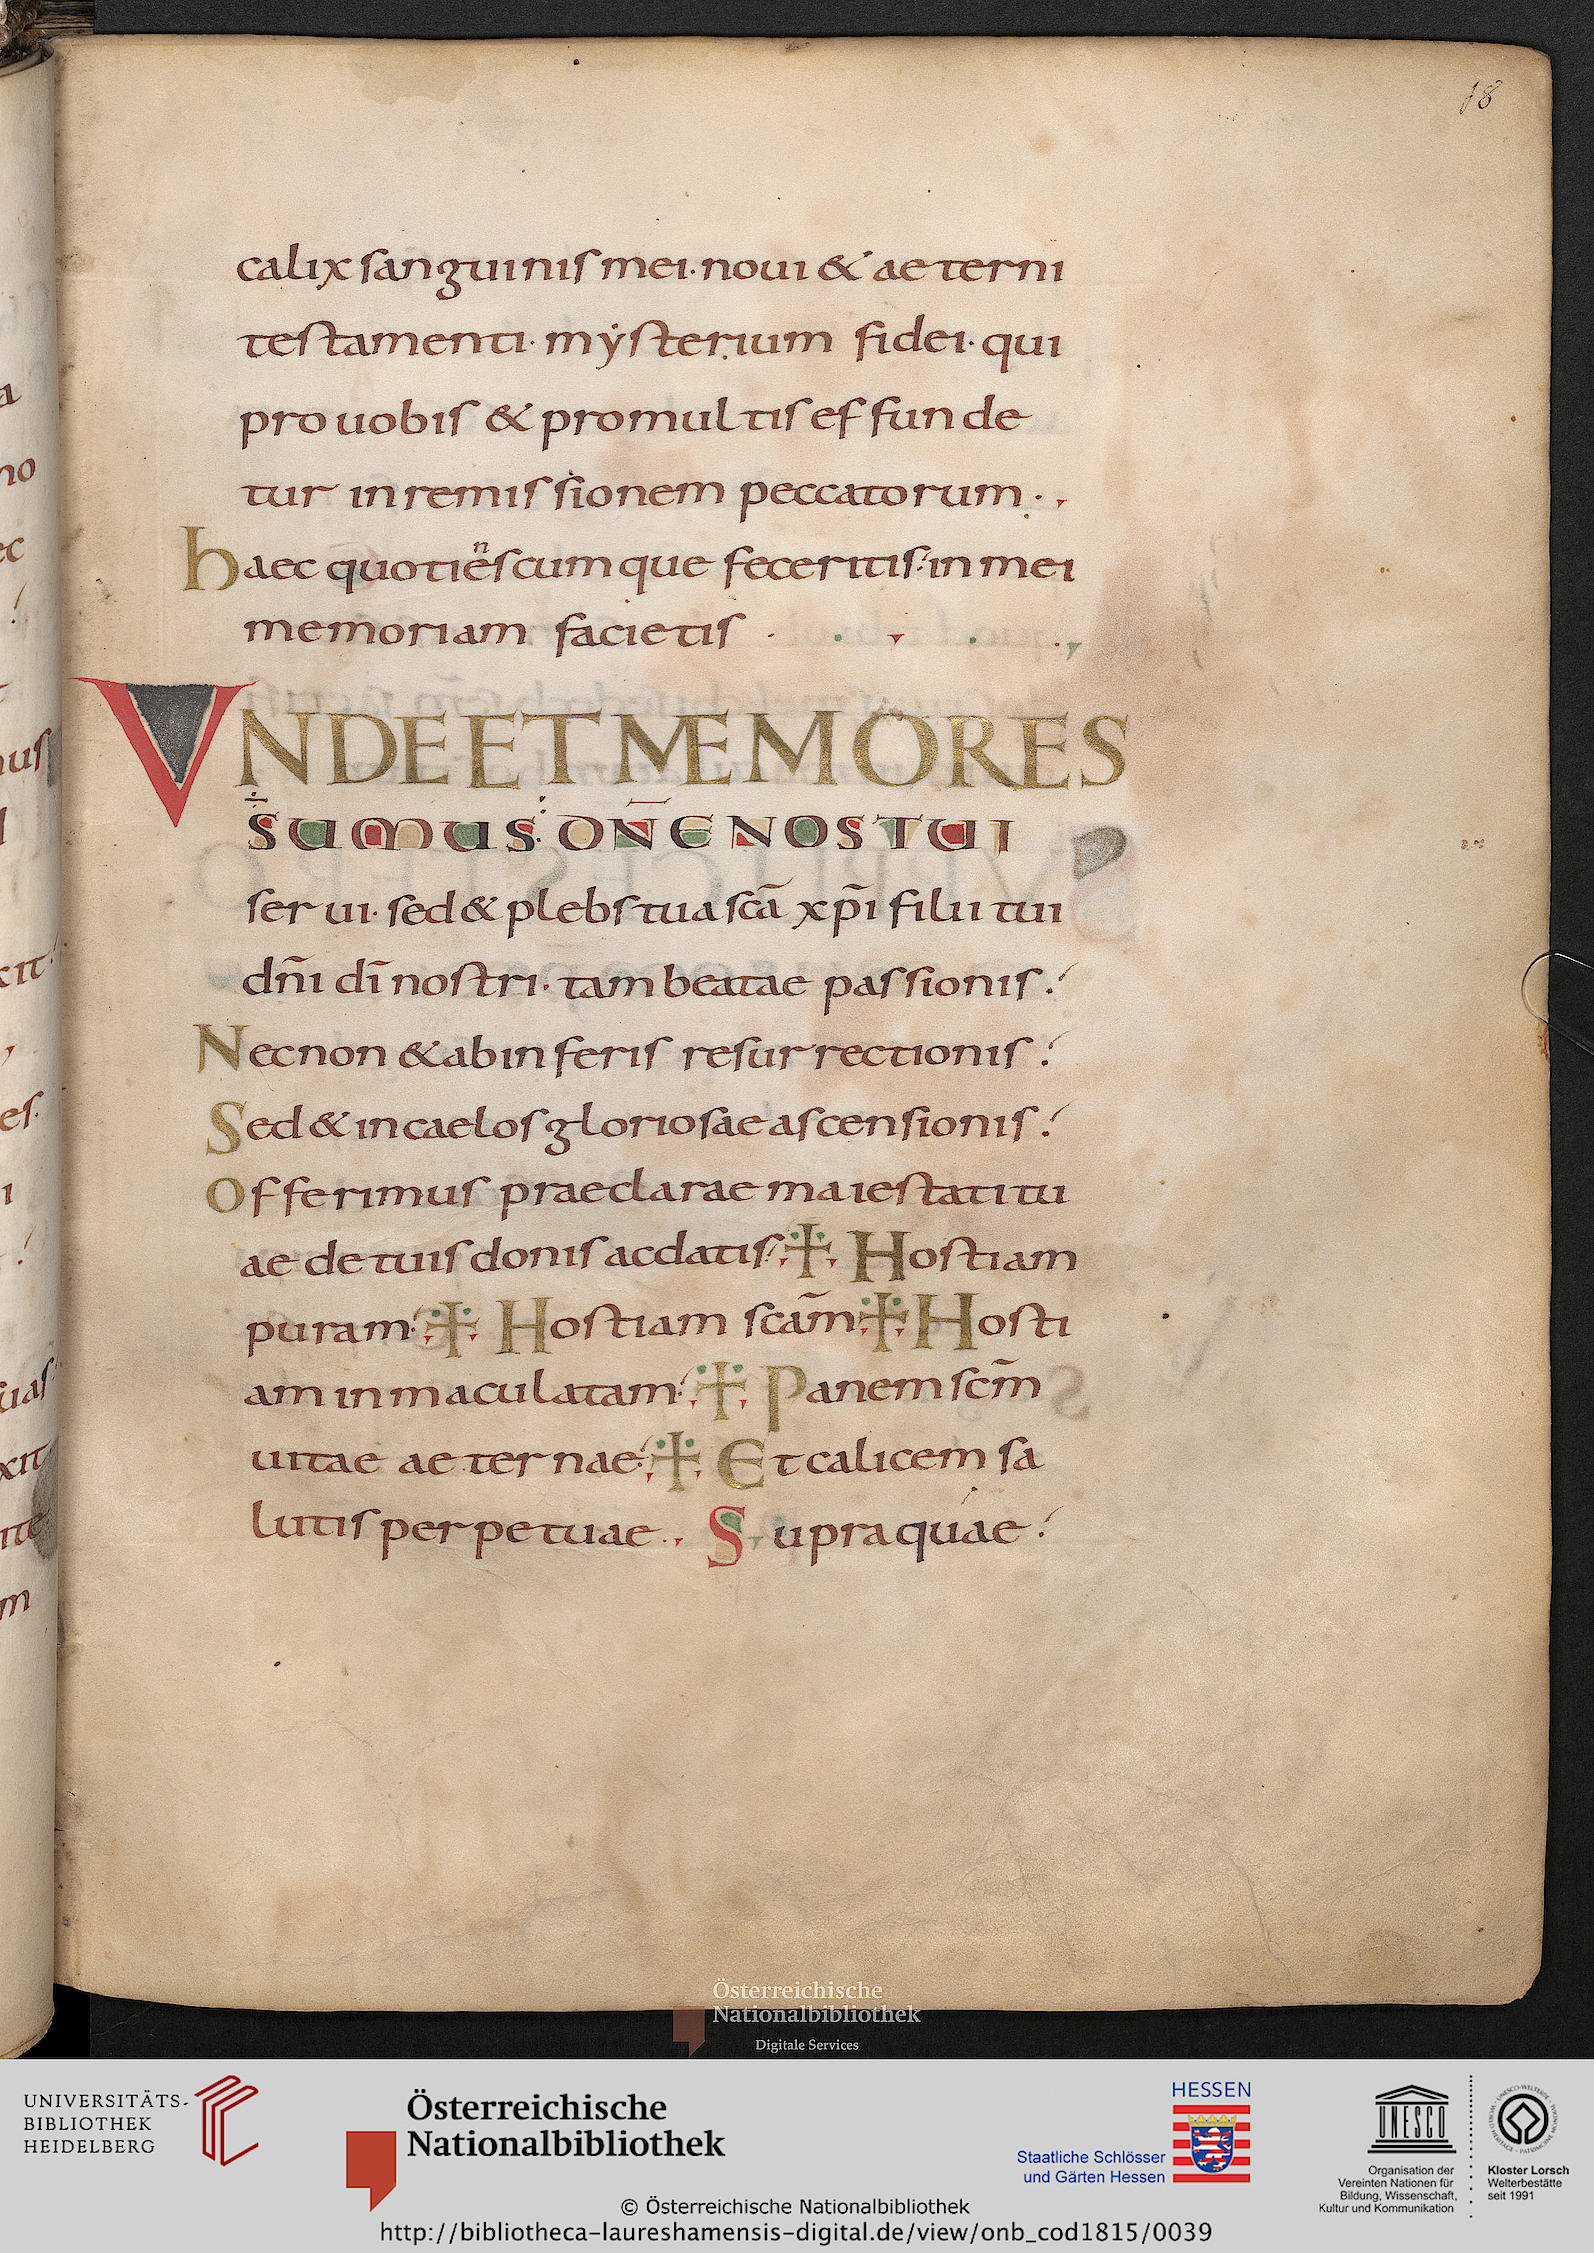 18
calix sanguinis mei· noui & aeterni
testamenti· mẏsterium fidei· qui
pro uobis & pro multis effunde
tur in remissionem peccatorum·,
haec quotienscumque feceritis: in mei
memoriam facietis · · , · .,
VNDE ET MEMORES
SUMUS: DN̄E NOS TUI
serui· sed & plebs tua scā xp̄i filii tui
dn̄i dī nostri· tam beatae passionis:
Necnon & ab inferis resurrectionis:
Sed & in caelos gloriosae ascensionis:
Offerimus praeclarae maiestati tu
ae de tuis donis ac datis: ✝ Hostiam
puram: ✝ Hostiam scām: ✝ Hosti
am inmaculatam: ✝ Panem scm̄
uitae aeternae: ✝ Et calicem sa
lutis perpetuae., Supra quae:
Österreichische
Nationalbibliothek
Digitale Services
UNIVERSITÄTS-
BIBLIOTHEK
HEIDELBERG
Österreichische
Nationalbibliothek
HESSEN
Staatliche Schlösser
und Gärten Hessen
UNESCO
Organisation der
Vereinten Nationen für
Bildung, Wissenschaft,
Kultur und Kommunikation
Kloster Lorsch
Welterbestätte
seit 1991
© Österreichische Nationalbibliothek
http://bibliotheca-laureshamensis-digital.de/view/onb_cod1815/0039